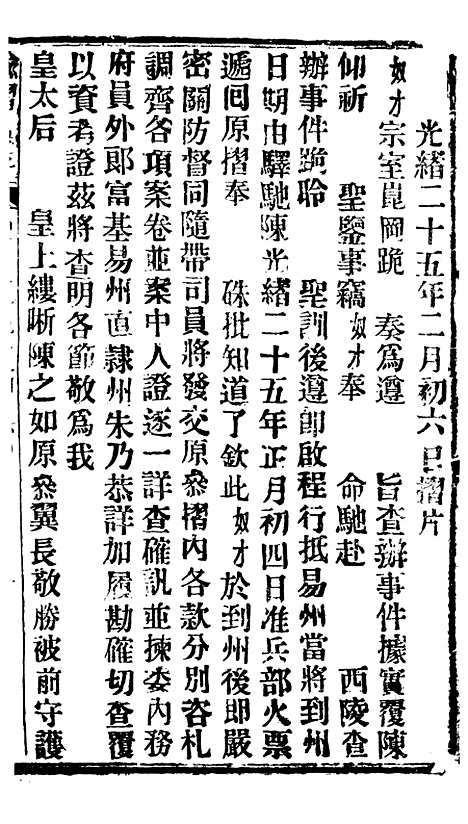 光緒二十五年二月初六日摺片
奴才宗室崑岡跪　奏為遵　旨查辦事件據實覆陳
仰祈　聖鑒事竊奴才奉　命馳赴　西陵查
辦事件跪聆　聖訓後遵即啟程行抵易州當將到州
日期由驛馳陳光緒二十五年正月初四日准兵部火票
遞回原摺奉　硃批知道了欽此奴才於到州後即嚴
密關防督同隨帶司員將發交原叅摺內各款分別咨札
調齊各項案卷並案中人證逐一詳查確訊並揀委內務
府員外郎富基易州直隸州朱乃恭詳加履勘確切查覆
以資考證茲將查明各節敬為我
皇太后　皇上縷晰陳之如原叅翼長敬勝被前守護